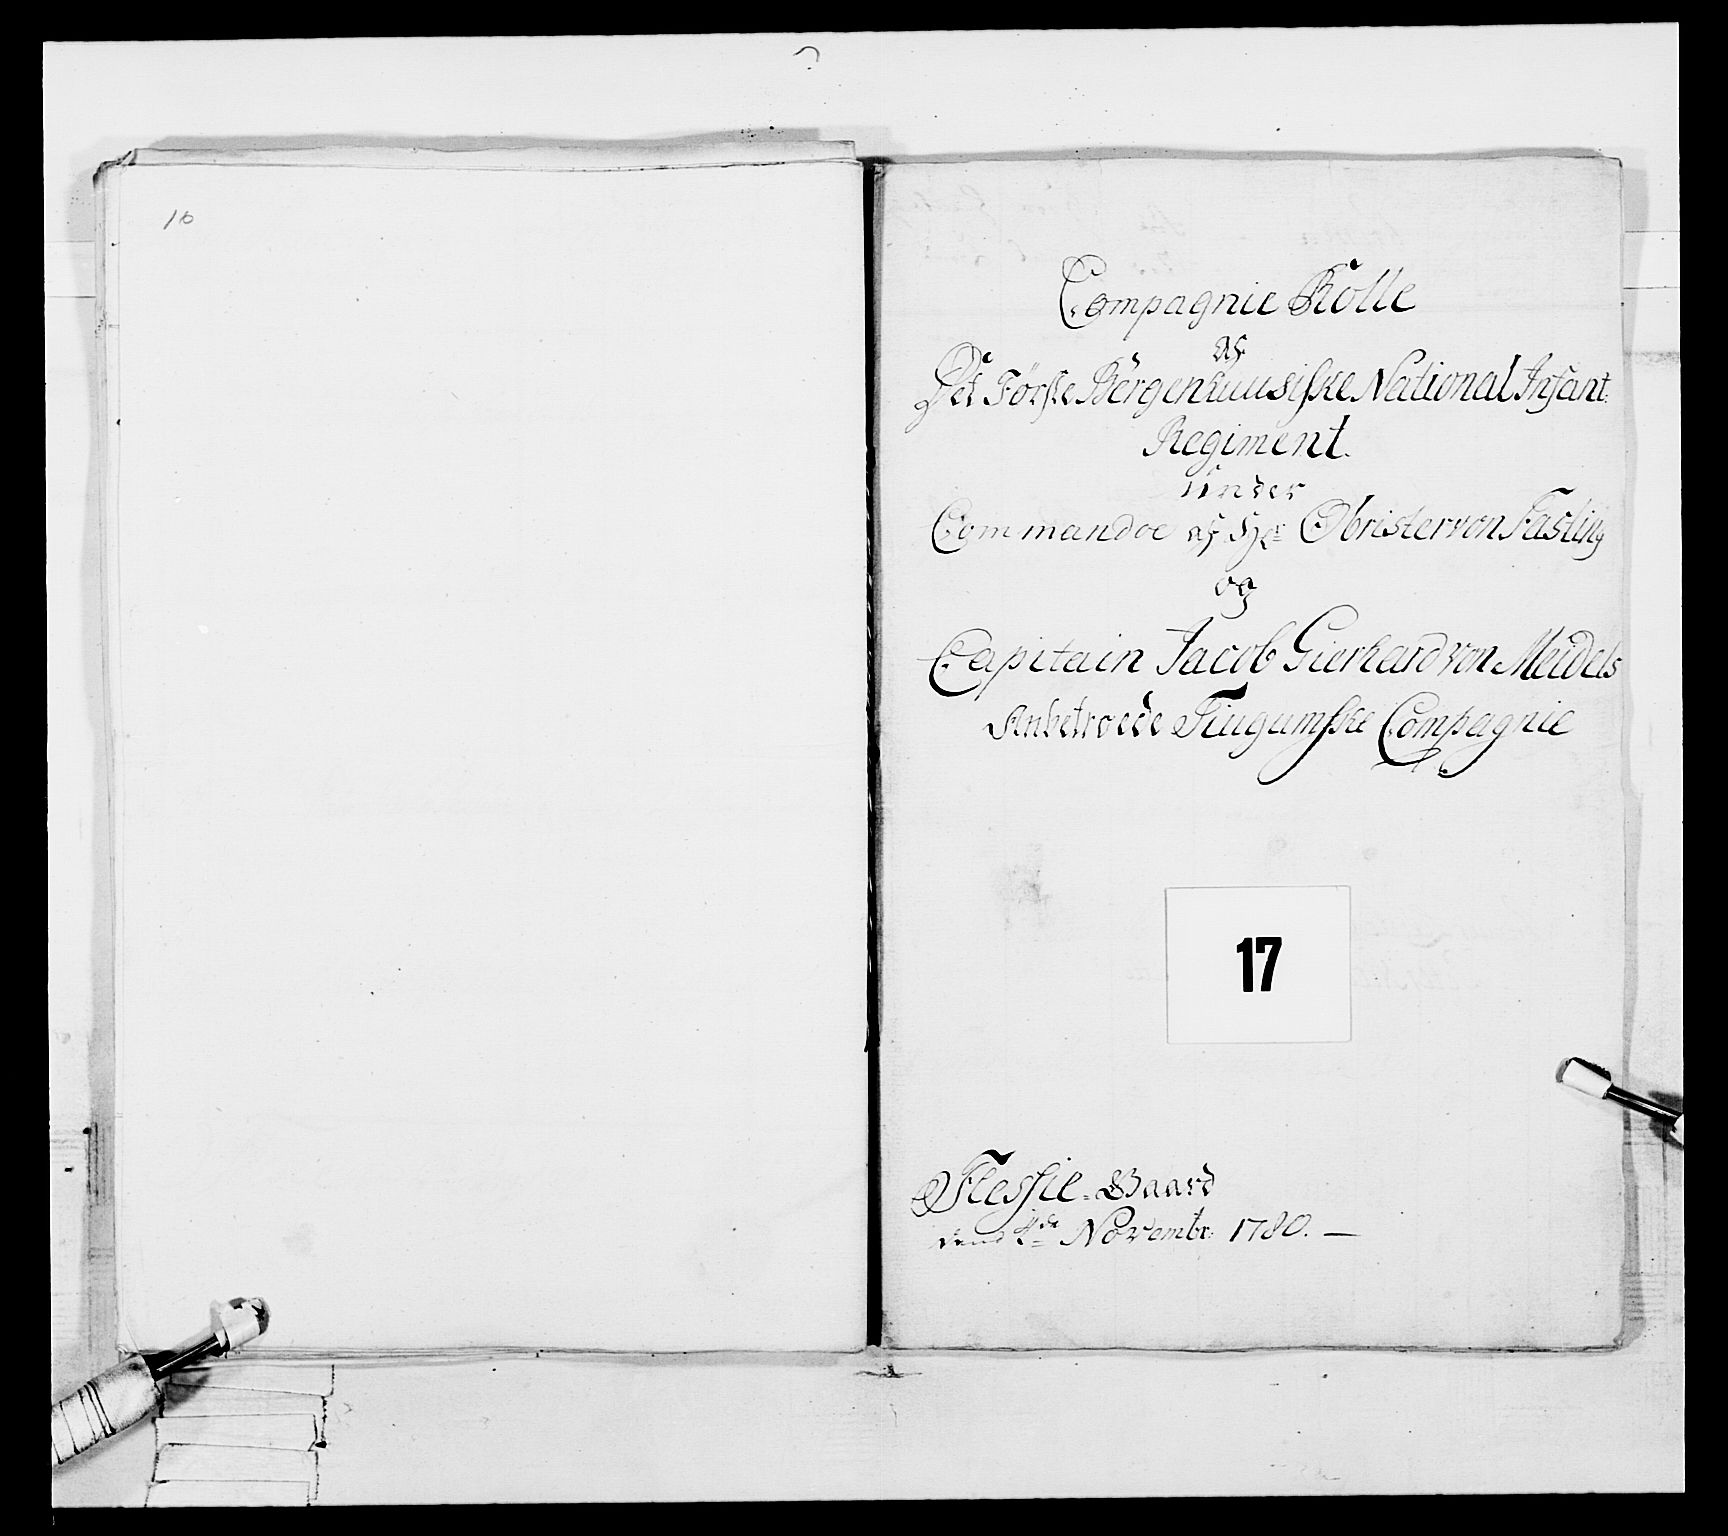 10
Compagnie Rolle
af
Det Første Bergenhuusiske National Infant:
Regiment.
Under
Commandoe af Hr Obrister von Fasting
og
Capitain Jacob Gierhard von Meidels
Anbetroede Compagnie
17
Flessie-Gaard
Novembr: 1780. —